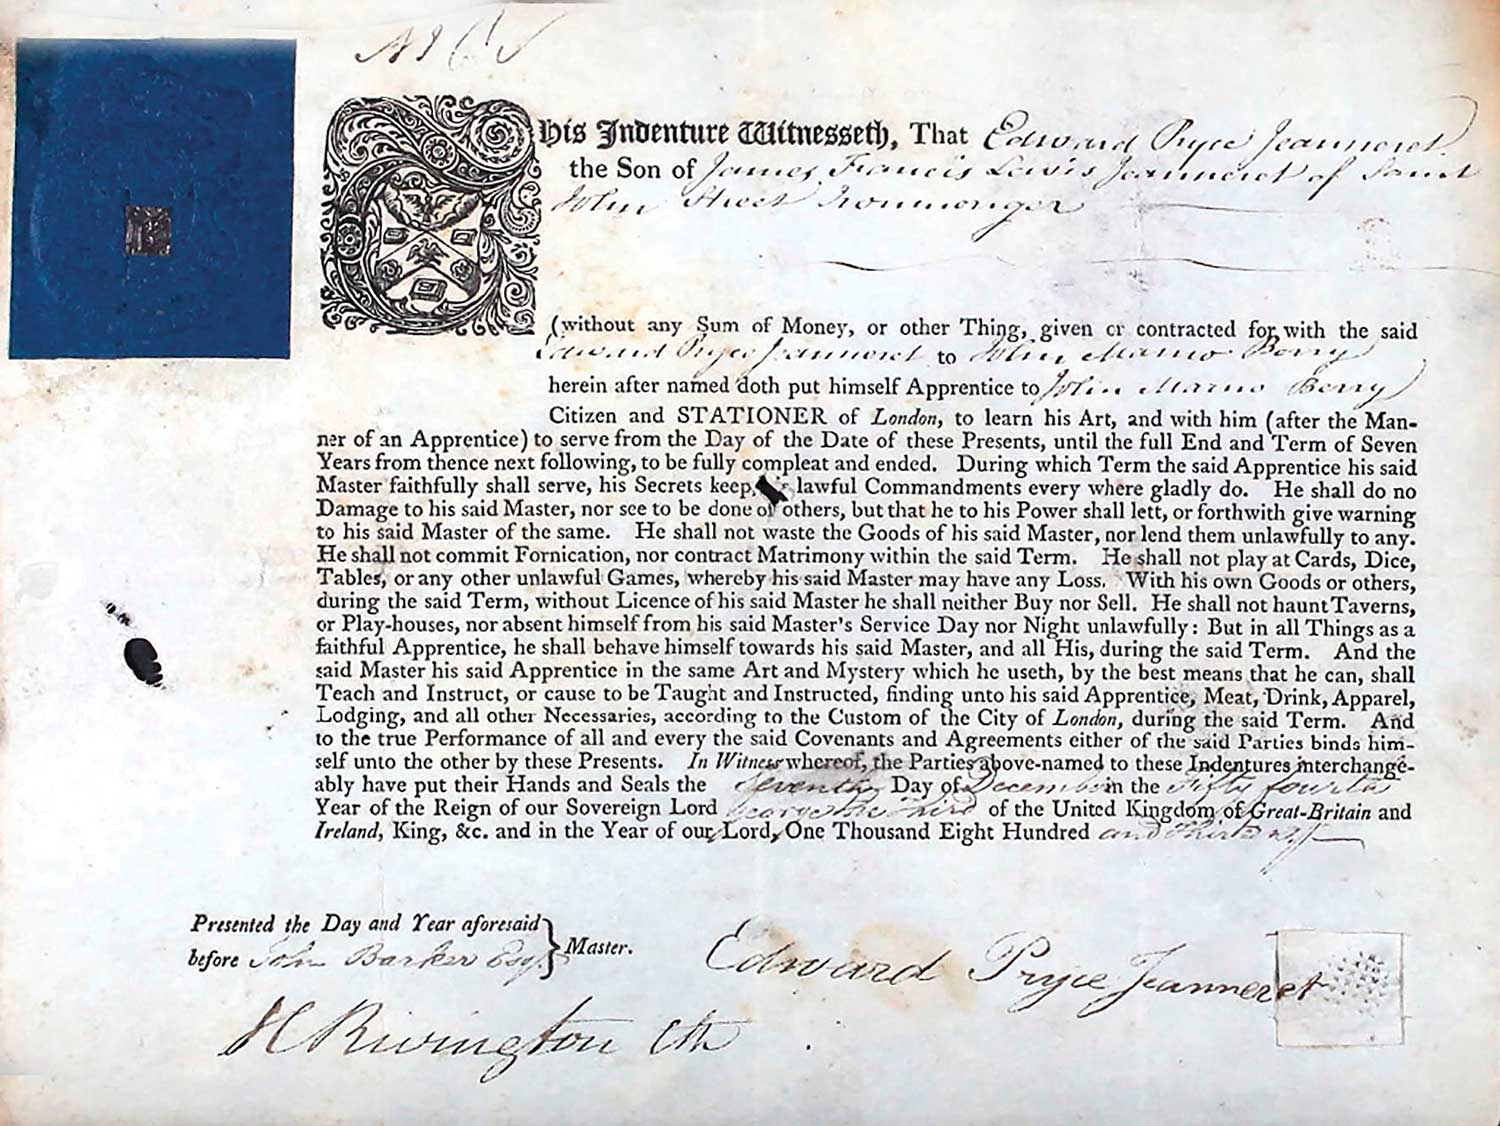 This Indenture Witnesseth, That Edward Pryce Jeanneret
the Son of James Francis Lewis Jeanneret of Saint
John Street Ironmonger
(without any Sum of Money, or other Thing, given or contracted for, with the said
Edward Pryce Jeanneret to John Marno Berry
herein after named doth put himself Apprentice to John Marno Berry
Citizen and STATIONER of London, to learn his Art, and with him (after the Man-
ner of an Apprentice) to serve from the Day of the Date of these Presents, until the full End and Term of Seven
Years from thence next following, to be fully compleat and ended. During which Term the said Apprentice his said
Master faithfully shall serve, his Secrets keep, lawful Commandments every where gladly do. He shall do no
Damage to his said Master, nor see to be done of others, but that he to his Power shall lett, or forthwith give warning
to his said Master of the same. He shall not waste the Goods of his said Master, nor lend them unlawfully to any.
He shall not commit Fornication, nor contract Matrimony within the said Term. He shall not play at Cards, Dice,
Tables, or any other unlawful Games, whereby his said Master may have any Loss. With his own Goods or others,
during the said Term, without Licence of his said Master he shall neither Buy nor Sell. He shall not haunt Taverns,
or Play-houses, nor absent himself from his said Master's Service Day nor Night unlawfully: But in all Things as a
faithful Apprentice, he shall behave himself towards his said Master, and all His, during the said Term. And the
said Master his said Apprentice in the same Art and Mystery which he useth, by the best means that he can, shall
Teach and Instruct, or cause to be Taught and Instructed, finding unto his said Apprentice, Meat, Drink, Apparel,
Lodging, and all other Necessaries, according to the Custom of the City of London, during the said Term. And
to the true Performance of all and every the said Covenants and Agreements either of the said Parties binds him-
self unto the other by these Presents. In Witness whereof, the Parties above-named to these Indentures interchange-
ably have put their Hands and Seals the Seventh Day of December in the Fifty fourth
Year of the Reign of our Sovereign Lord George the Third of the United Kingdom of Great-Britain and
Ireland, King, &c. and in the Year of our Lord, One Thousand Eight Hundred and
Presented the Day and Year aforesaid
before John Barker Esq. } Master.
Edward Pryce Jeanneret
Rivington